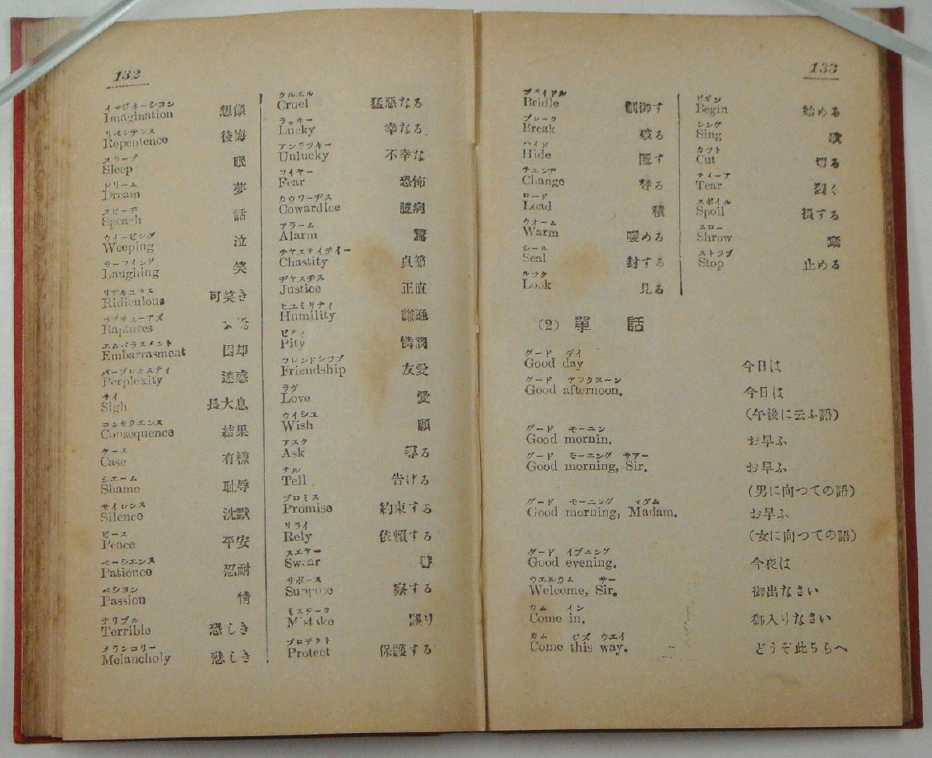 132
イマジネーション
Imagination 想像
リペンテンス
Repentence 後悔
スリープ
Sleep 眠
ドリーム
Dream 夢
スピーチ
Speech 話
ウイーピング
Weeping 泣
ラーフイング
Laughing 笑
Ridiculous 可笑き
Raptures
エムバラスメント
Embarrasment 困却
パープレキスティ
Perplexity 迷惑
サイ
Sigh 長大息
コンセクエンス
Consequence 結果
ケース
Case 有樣
シエーム
Shame 耻辱
サイレンス
Silence 沈默
ピース
Peace 平安
ペーシエンス
Patience 忍耐
パシヨン
Passion 情
テリブル
Terrible 恐しき
メランコリー
Melancholy 悲しき
クルエル
Cruel 猛惡なる
ラッキー
Lucky 幸なる
アンラツキー
Unlucky 不幸な
フイヤー
Fear 恐怖
カウワーデス
Cowardice 臆病
アラーム
Alarm 驚
チヤスティティー
Chastity 貞節
ヂヤスチス
Justice 正直
ヒユミリティ
Humility 謙遜
ピティ
Pity 憐憫
フレンドシツプ
Friendship 友愛
ラヴ
Love 愛
ウイシユ
Wish 願
アスク
Ask 尋る
テル
Tell 告げる
プロミス
Promise 約束する
リライ
Rely 依頼する
スエヤー
Swear
サポース
Suppose 察する
ミステーク
Mistake 誤り
プロテクト
Protect 保護する
133
ブライドル
Bridle 制御す
ブレーク
Break 破る
ハイド
Hide 匿す
チエンヂ
Change 替る
ロード
Load 積
ウオーム
Warm 暖める
シール
Seal 封する
ルツク
Look 見る
ビギン
Begin 始める
シング
Sing 歌
カツト
Cut 切る
ティーア
Tear 裂く
スポイル
Spoil 損する
スロー
Shrow 棄
ストツプ
Stop 止める
(2) 單話
グード デイ
Good day 今日は
グード アフタヌーン
Good afternoon. 今日は
(午後に云ふ語)
グード モーニン
Good mornin. お早ふ
グード モーニング サアー
Good morning, Sir. お早ふ
(男に向つての語)
グード モーニング マダム
Good morning, Madam. お早ふ
(女に向つての語)
グード イブニング
Good evening. 今夜は
ウエルカム サー
Welcome, Sir. 御出なさい
カム イン
Come in. 御入りなさい
カム ヒズ ウエイ
Come this way. どうぞ此ちらへ